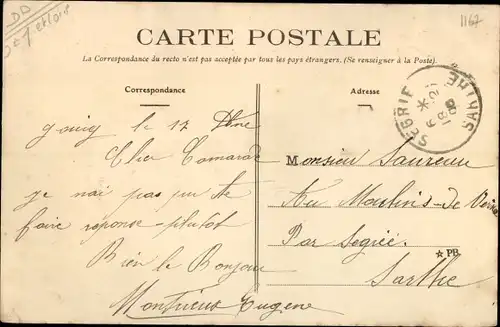 1167
CARTE POSTALE
La Correspondance du recto n'est pas acceptée par tous les pays étrangers. (Se renseigner à la Poste).
Correspondance
Adresse
SÉGRIE
SARTHE
le 17
Cher Camarade
je nai pas pu te
faire reponse plutot
Bien le Bonjour
Eugene
Monsieur
Au Moulins-de
Par Segrie
★ PB
Sarthe